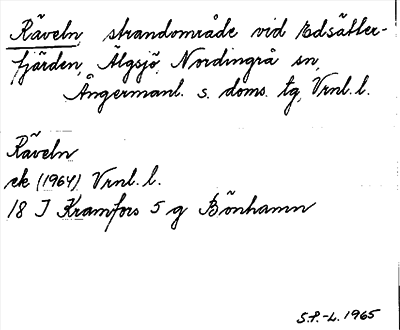 Räveln, strandområde vid Edsätter-
fjärden, Älgsjö, Nordingrå sn,
Ångermanl. s. doms. tg, Vrnl. l.
Räveln
ek (1964) Vrnl. l.
18 I Kramfors 5 g Bönhamn
S.P.-L. 1965